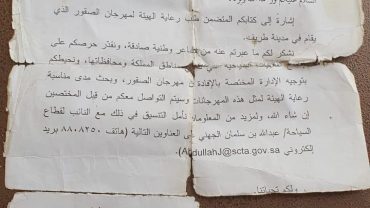 إشارة إلى كتابكم المتضمن طلب رعاية الهيئة لمهرجان الصقور الذي
يقام في مدينة طريف.
نشكر لكم ما عبرتم عنه من مشاعر وطنية صادقة، ونقدر حرصكم على
مناطق المملكة ومحافظاتها، ونحيطكم
بتوجيه الإدارة المختصة بالإفادة مهرجان الصقور، وبحث مدى مناسبة
رعاية الهيئة لمثل هذه المهرجانات وسيتم التواصل معكم من قبل المختصين
إن شاء الله، ولمزيد من المعلومات نأمل التنسيق في ذلك مع النائب لقطاع
السياحة/ عبدالله بن سلمان الجهني على العناوين التالية (هاتف ٨٨٠٨٢٥٠ بريد
إلكتروني AbdullahJ@scta.gov.sa).
ولكم تحياتنا،